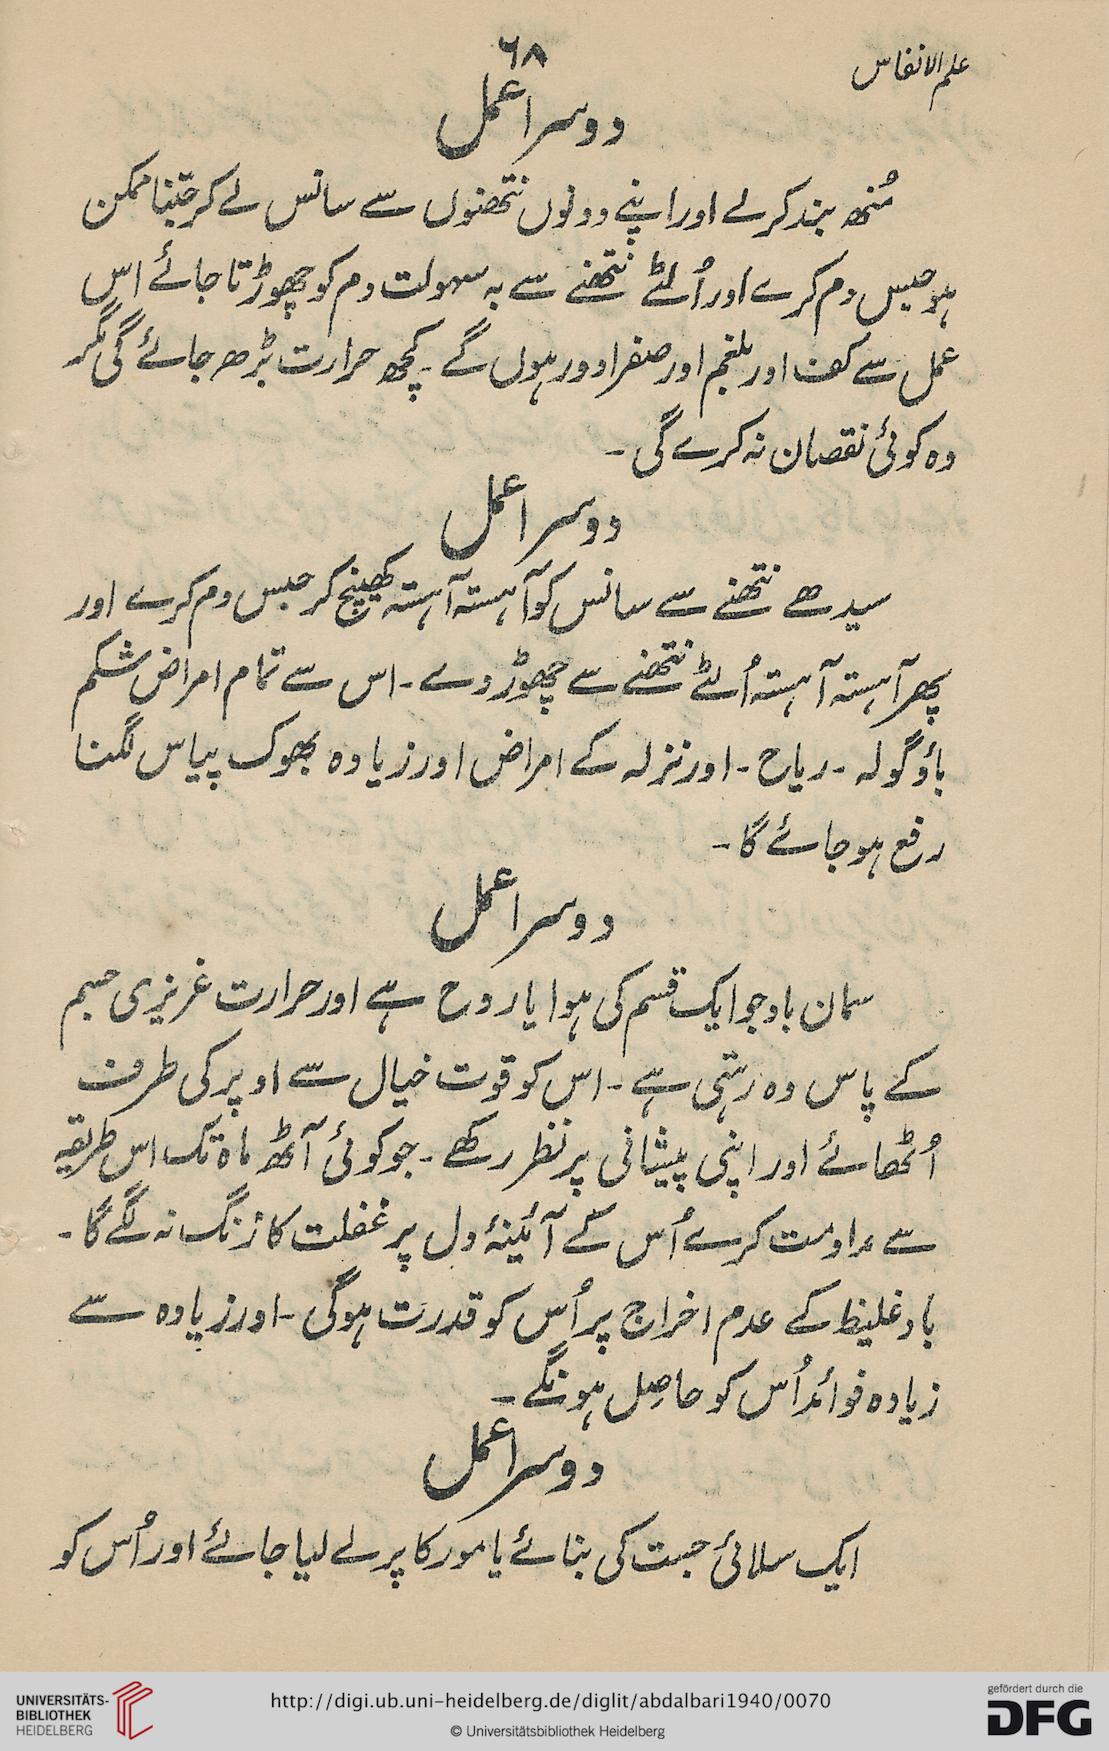 علم الانفاس
۶۸
دوسرا عمل
مُنھ بند کرلے اور اپنے دونوں نتھنوں سے سانس لے کر جتنا ممکن
ہو حبس دم کرے اور اُلٹے نتھنے سے بہ سہولت دم کو چھوڑتا جائے اس
عمل سے کف اور بلغم اور صفرا دور ہوں گے ۔ کچھ حرارت بڑھ جائے گی مگر
وہ کوئی نقصان نہ کرے گی ۔
دوسرا عمل
سیدھے نتھنے سے سانس کو آہستہ آہستہ کھینچ کر حبس دم کرے اور
پھر آہستہ آہستہ اُلٹے نتھنے سے چھوڑ دے ۔ اس سے تمام امراض شکم
باؤ گولہ ۔ ریاح ۔ اور نزلہ کے امراض اور زیادہ بھوک پیاس لگنا
رفع ہو جائے گا ۔
دوسرا عمل
سمان باد جو ایک قسم کی ہوا یا روح ہے اور حرارت غریزی جسم
کے پاس وہ رہتی ہے ۔ اس کو قوت خیال سے اوپر کی طرف
اُٹھائے اور اپنی پیشانی پر نظر رکھے ۔ جو کوئی آٹھ ماہ تک اس طریقہ
سے مداومت کرے اُس کے آئینۂ دل پر غفلت کا زنگ نہ لگے گا ۔
باد غلیظ کے عدم اخراج پر اُس کو قدرت ہوگی ۔ اور زیادہ سے
زیادہ فوائد اُس کو حاصِل ہونگے ۔
دوسرا عمل
ایک سلائی جست کی بنائے یا مور کا پر لے لیا جائے اور اُس کو
UNIVERSITÄTS-
BIBLIOTHEK
HEIDELBERG
http://digi.ub.uni-heidelberg.de/diglit/abdalbari1940/0070
© Universitätsbibliothek Heidelberg
gefördert durch die
DFG